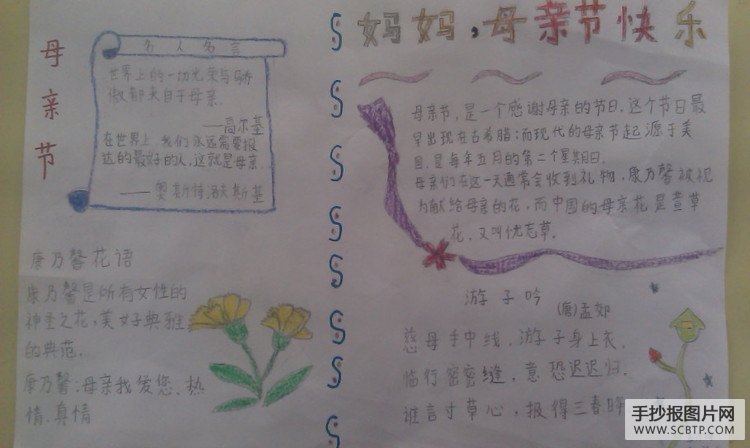 母亲节
名人名言
世界上的一切光荣与骄
傲都来自于母亲.
——高尔基
在世界上,我们永远需要报
达的最好的人,这就是母亲.
——奥斯特洛夫斯基
康乃馨花语
康乃馨是所有女性的
神圣之花,美好典雅
的典范.
康乃馨:母亲我爱您.热
情.真情
妈妈,母亲节快乐
母亲节,是一个感谢母亲的节日.这个节日最
早出现在古希腊;而现代的母亲节起源于美
国.是每年五月的第二个星期日.
母亲们在这一天通常会收到礼物,康乃馨被视
为献给母亲的花,而中国的母亲花是萱草
花.又叫忧忘草.
游子吟
(唐)孟郊
慈母手中线,游子身上衣.
临行密密缝,意恐迟迟归.
谁言寸草心,报得三春晖
手抄报图片网
WWW.SCBTP.COM